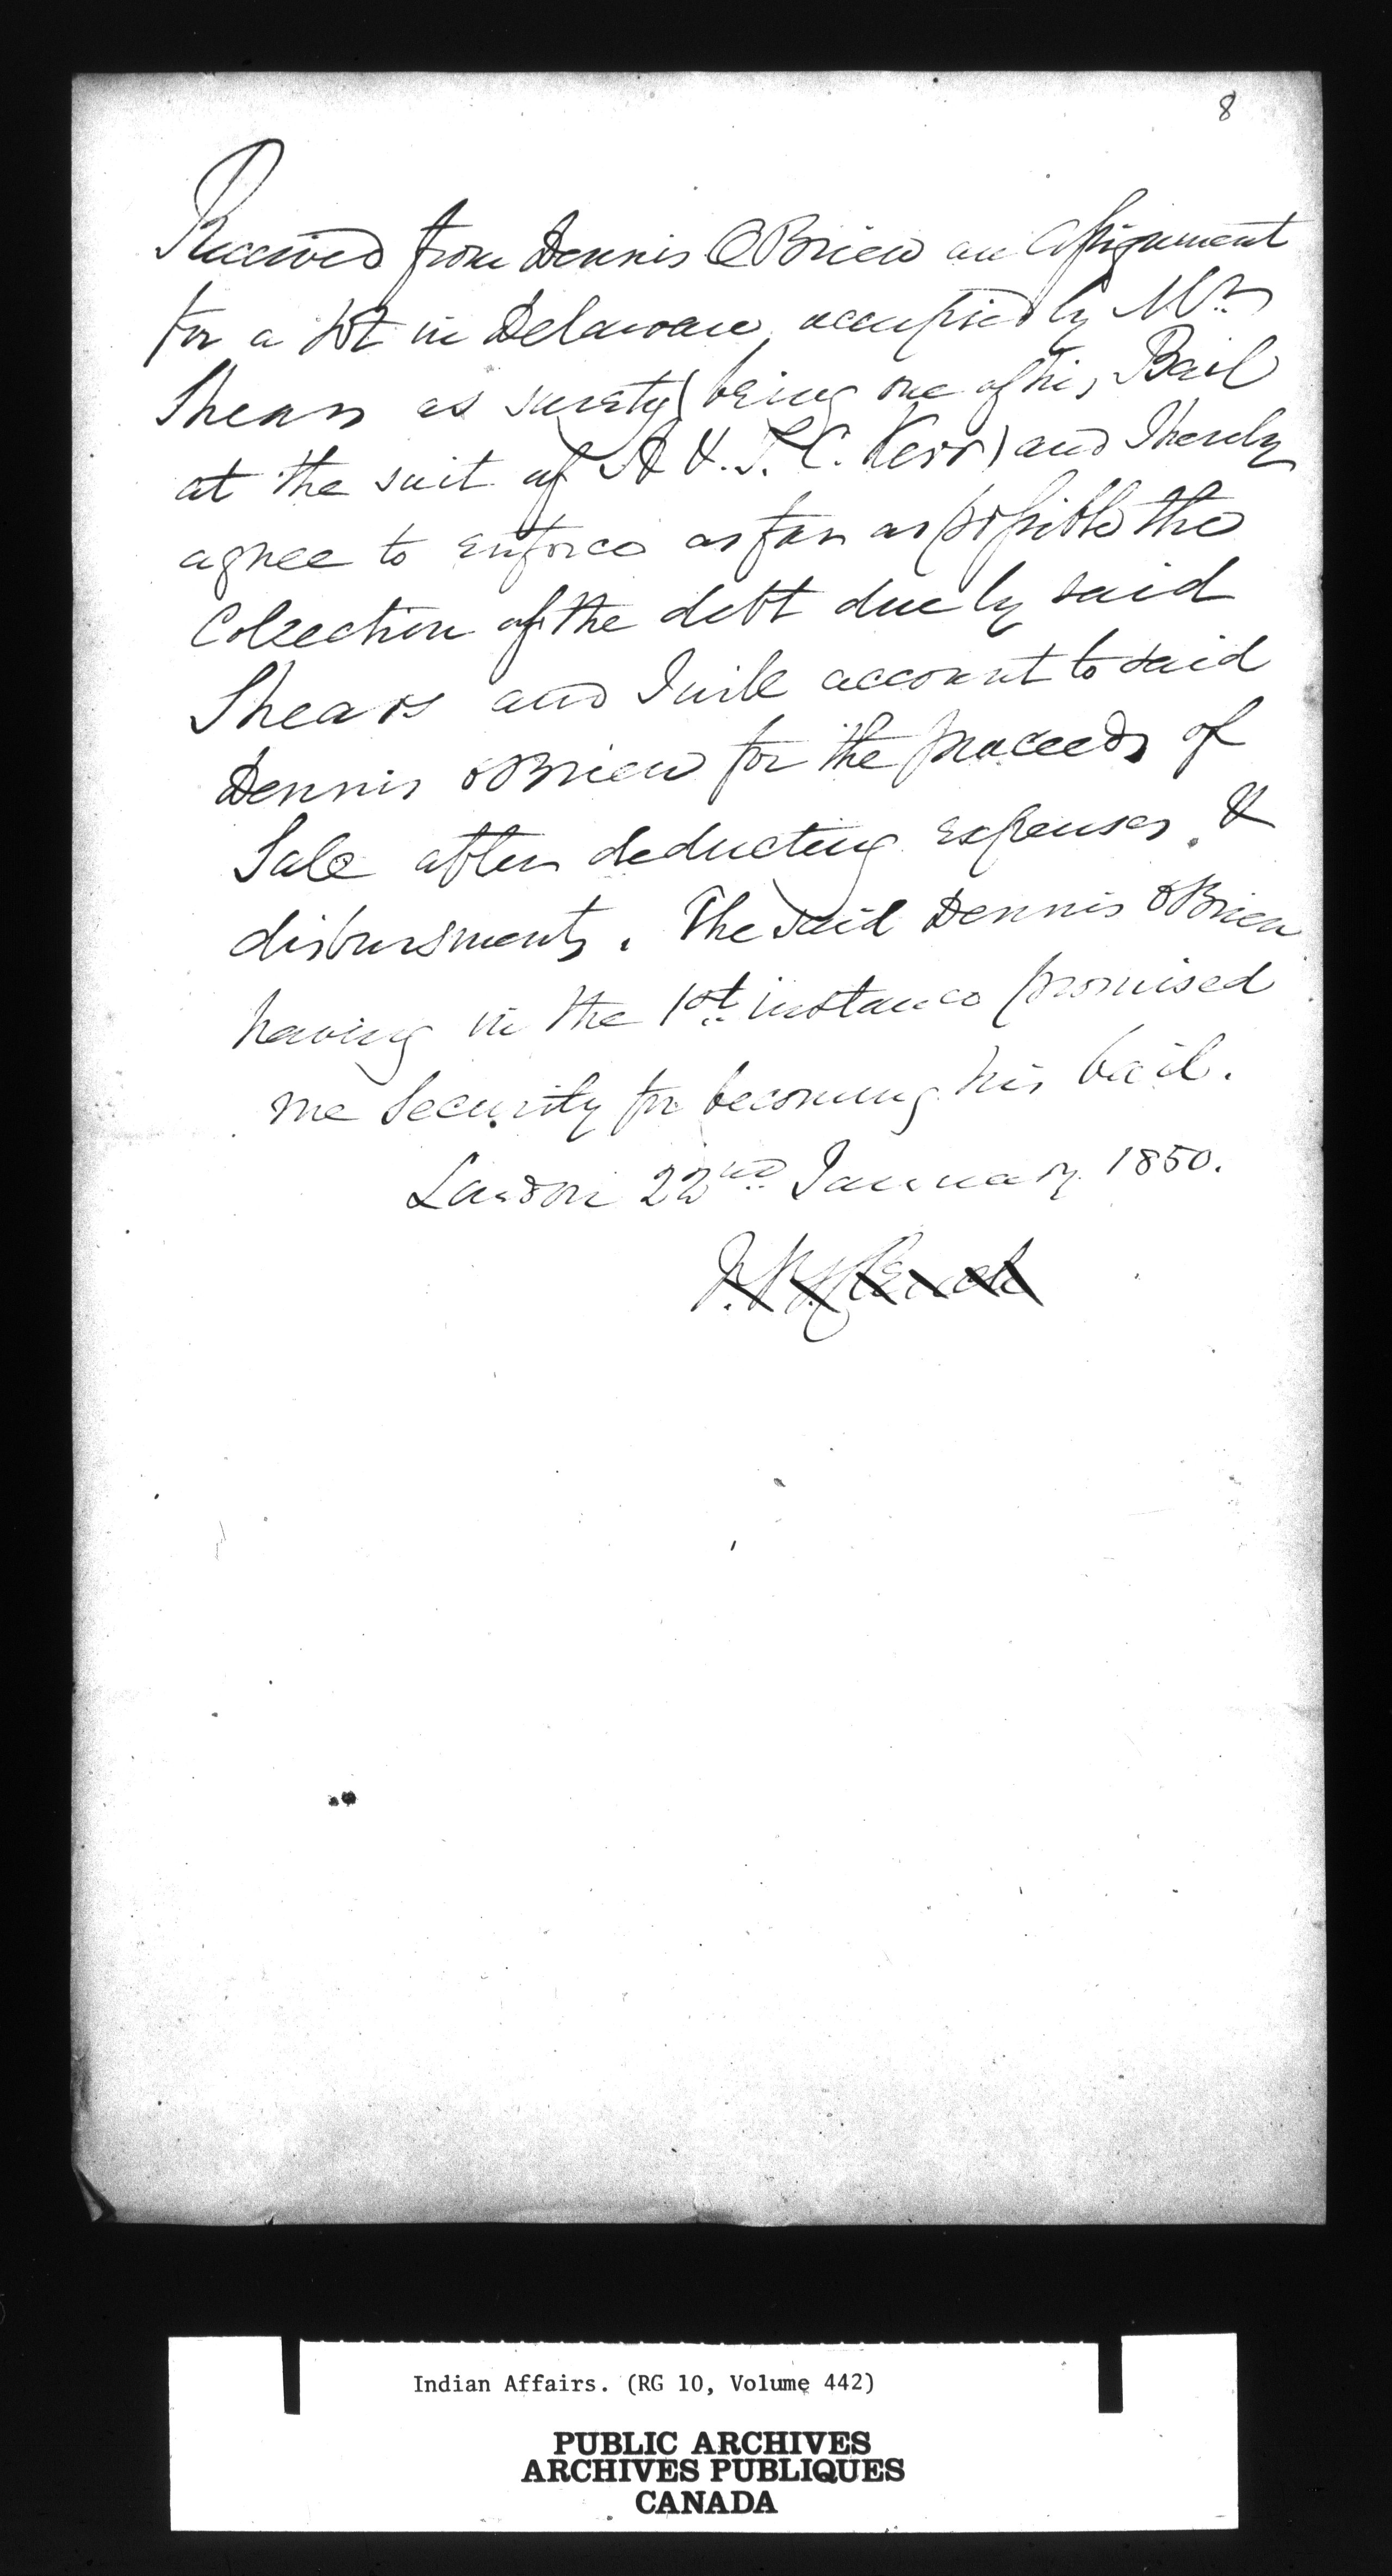 8
Received from Dennis OBrien an Assignment
for a lot in Delaware occupied by Mr
Shears as surety (being one of his Bail
at the suit of A & T. C. Kerr) and I hereby
agree to enforce as far as possible the
Collection of the debt due by said
Shears and I will account to said
Dennis OBrien for the proceeds of
Sale after deducting expenses &
disbursments. The said Dennis OBrien
having in the 1st instance promised
me Security for becoming his bail.
London 22nd January 1850.
Indian Affairs. (RG 10, Volume 442)
PUBLIC ARCHIVES
ARCHIVES PUBLIQUES
CANADA